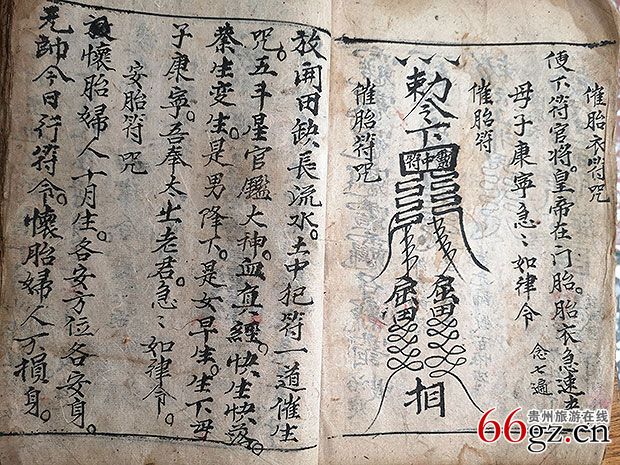 催胎衣符咒
便下符官将。皇帝在门胎。胎衣急速
母子康寧急〻如律令
念七遍
催胎符
勅令下
屈田 屈田
相
催胎符咒
放開田缺長流水。土中犯符一道催生
咒。五斗星官鑑大神。血真經快生快落。
蔡生变生。是男降下。是女早生。生下母
子康寧。吾奉太上老君急〻如律令。
安胎符咒
懷胎婦人十月生。各安方位各安身。
師今日行符令。懷胎婦人不損身。
贵州旅游在线
66gz.cn